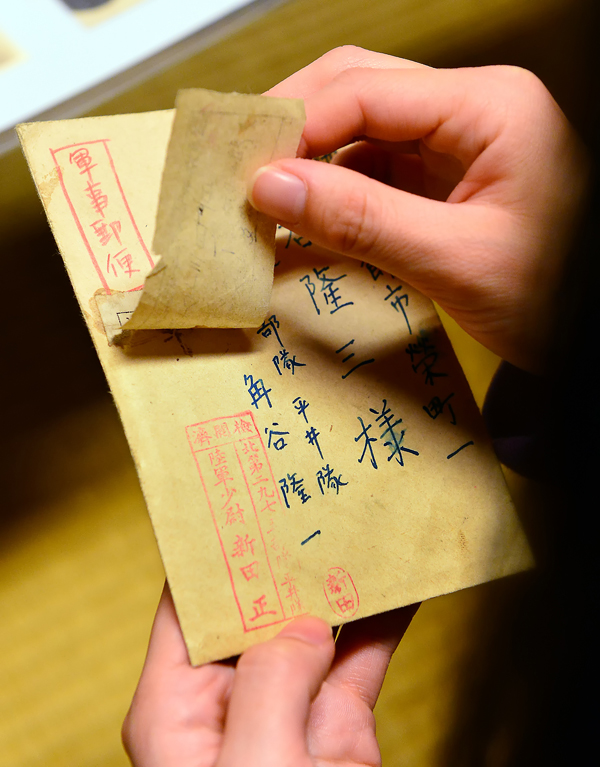 市榮町一
谷隆三様
部隊 平井隊
角谷隆一
軍事郵便
檢閲濟
北第二九七
陸軍少尉 新田 正
新田